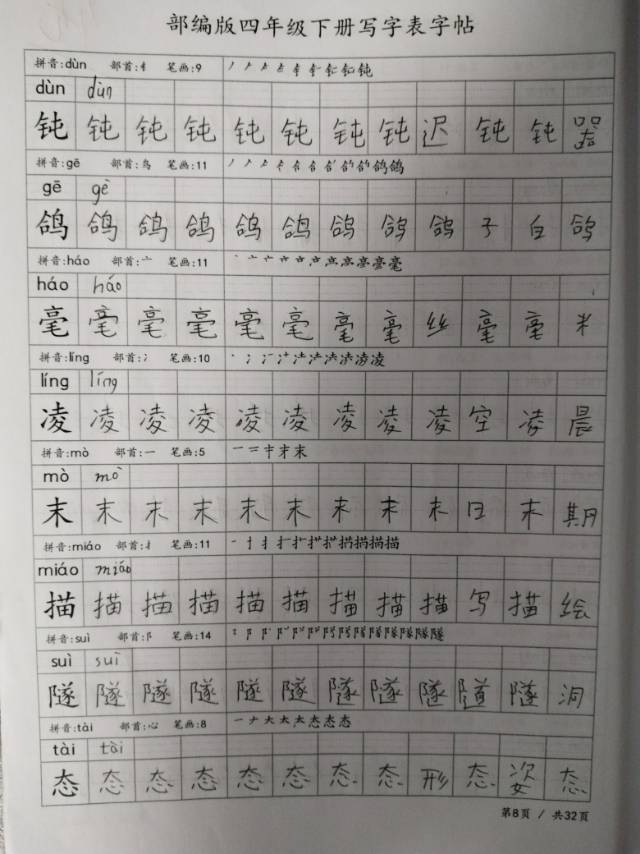 部编版四年级下册写字表字帖
拼音:dùn 部首:钅 笔画:9
dùn dùn
钝 钝 钝 钝 钝 钝 钝 钝 迟 钝 钝 器
拼音:gē 部首:鸟 笔画:11
gē gè
鸽 鸽 鸽 鸽 鸽 鸽 鸽 鸽 鸽 子 白 鸽
拼音:háo 部首:亠 笔画:11
háo háo
毫 毫 毫 毫 毫 毫 毫 毫 丝 毫 毫 米
拼音:líng 部首:冫 笔画:10
líng líng
凌 凌 凌 凌 凌 凌 凌 凌 凌 空 凌 晨
拼音:mò 部首:一 笔画:5
mò mò
末 末 末 末 末 末 末 末 末 日 末 期
拼音:miáo 部首:扌 笔画:11
miáo miáo
描 描 描 描 描 描 描 描 描 写 描 绘
拼音:suì 部首:阝 笔画:14
suì suì
隧 隧 隧 隧 隧 隧 隧 隧 隧 道 隧 洞
拼音:tài 部首:心 笔画:8
tài tài
态 态 态 态 态 态 态 态 形 态 姿 态
第8页 / 共32页